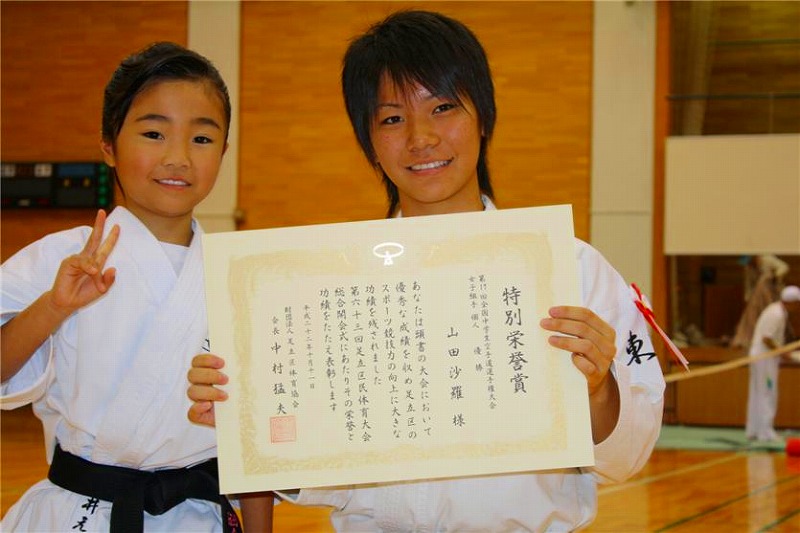 特別栄誉賞
第17回全国中学生空手道選手権大会
女子組手個人 優勝
山田沙羅 様
あなたは頭書の大会において
優秀な成績を収め足立区の
スポーツ競技力の向上に大きな
功績を残されました
第六十三回足立区民体育大会
総合開会式にあたりその栄誉と
功績をたたえ表彰します
平成二十二年十月十一日
財団法人足立区体育協会
会長 中村猛夫
東
井